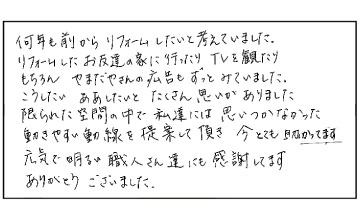 何年も前から リフォームしたいと考えていました。
リフォームしたお友達の家に行ったり TVを観たり
もちろん やまだやさんの広告もずっとみていました。
こうしたい ああしたいと たくさん思いがありました
限られた空間の中で 私達には思いつかなかった
動きやすい動線を提案して頂き 今とても助かってます
元気で明るい職人さん達にも感謝してます
ありがとうございました。